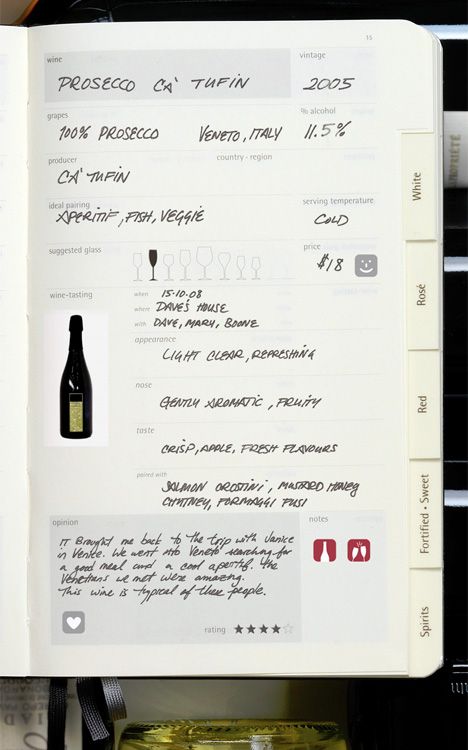 15
wine
vintage
PROSECCO CA' TUFIN
2005
grapes
% alcohol
100% PROSECCO
VENETO, ITALY
11.5%
producer
country · region
CA' TUFIN
ideal pairing
serving temperature
APERITIF, FISH, VEGGIE
COLD
suggested glass
price
$18
wine-tasting
when 15·10·08
where DAVE'S HOUSE
with DAVE, MARY, BOONE
appearance
LIGHT CLEAR, REFRESHING
nose
GENTLY AROMATIC, FRUITY
taste
CRISP, APPLE, FRESH FLAVOURS
paired with
SALMON CROSTINI, MUSTARD HONEY
CHUTNEY, FORMAGGI FUSI
opinion
notes
IT Brought me back to the trip with Janice
in Venice. We went into Veneto searching for
a good meal and a cool aperitif. The
Venetians we met were amazing.
This wine is typical of these people.
rating
White
Rosé
Red
Fortified · Sweet
Spirits
PROPRIÉTÉ